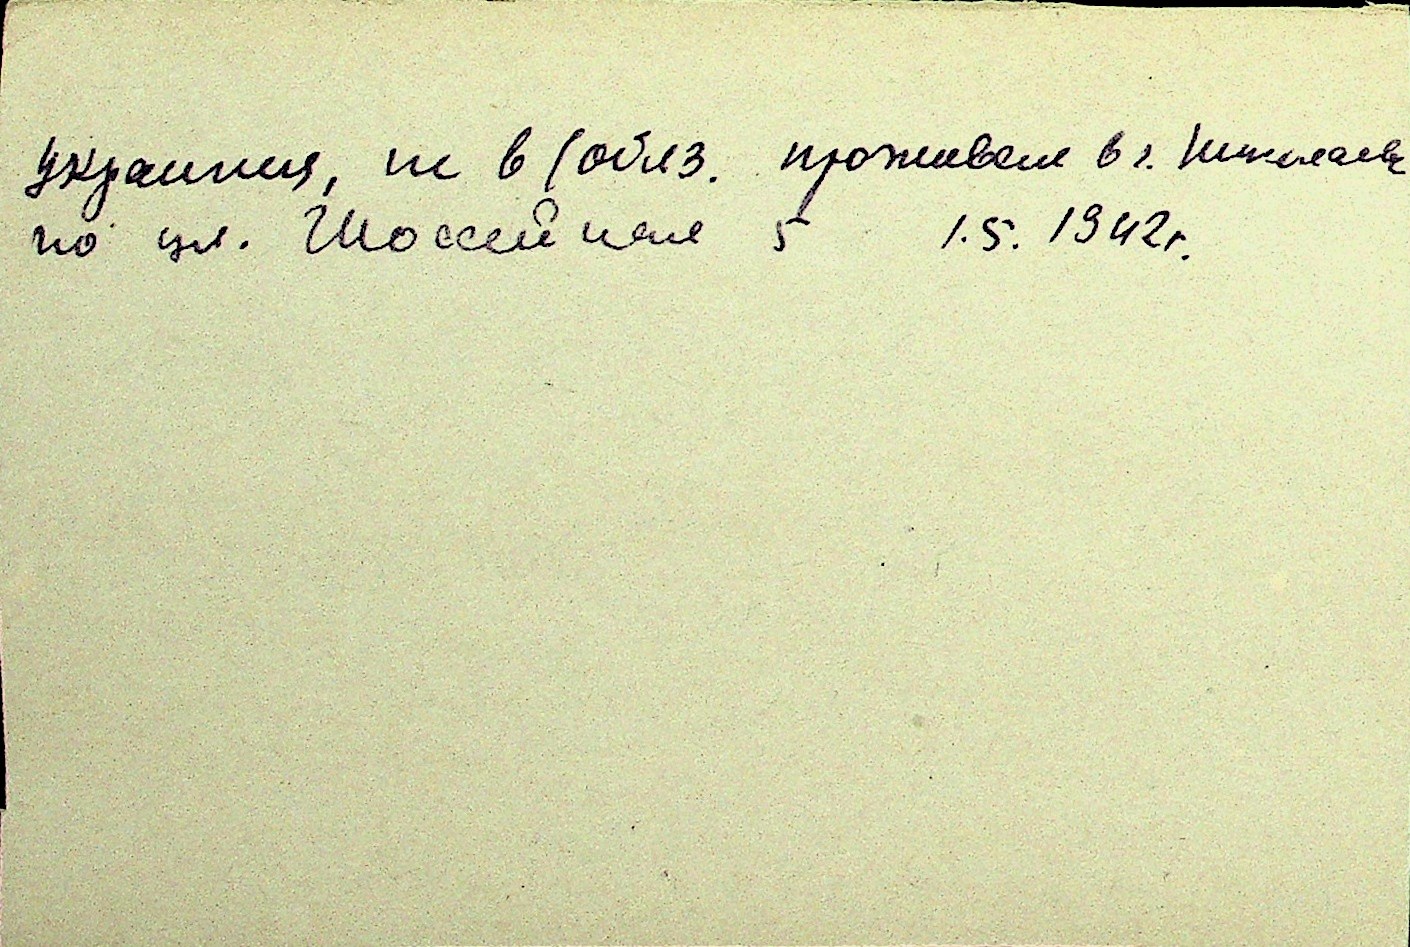 украинец, не в/обяз. проживал в г. Николаеве
по ул. Шоссейная 5 1.5. 1942г.